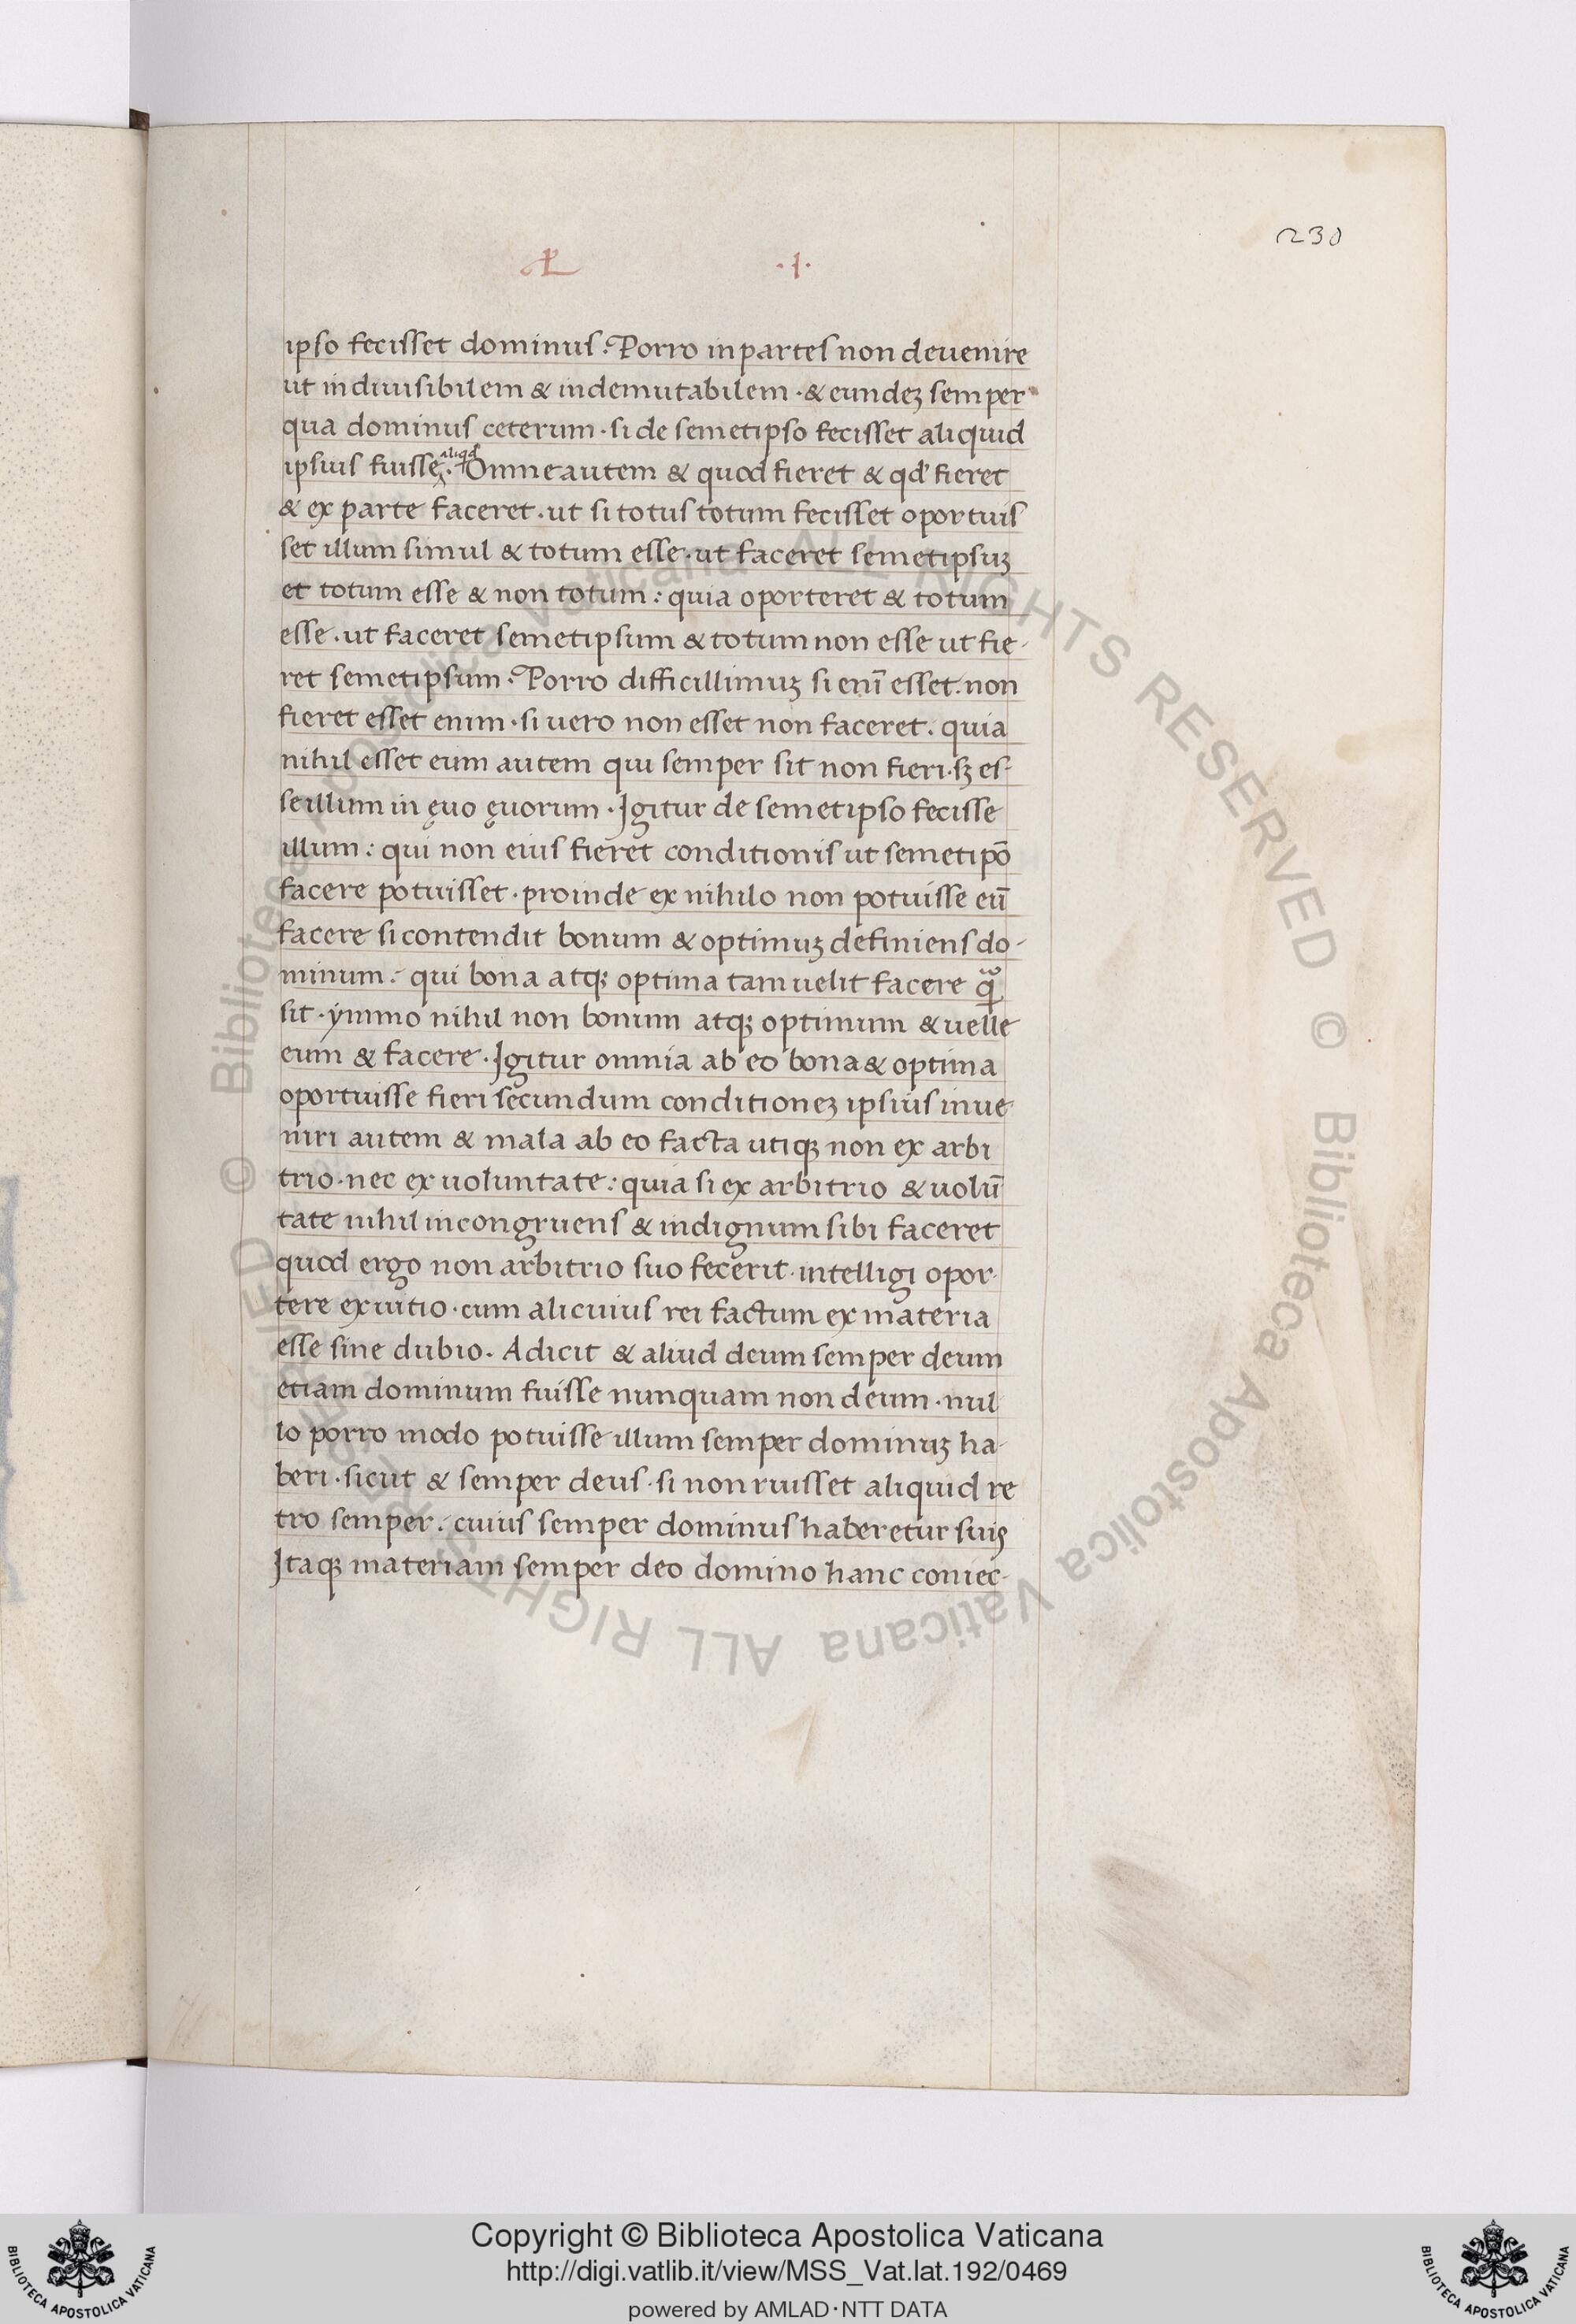 230
·I·
ipso fecisset dominus. Porro in partes non deuenire
ut indiuisibilem & indemutabilem · & eundeꝫ semper
qua dominus ceterum · si de semetipso fecisset aliquid
aliqd
ipsius fuisse. Omne autem & quod fieret & qd' fieret
& ex parte faceret · ut si totus totum fecisset oportuis
set illum simul & totum esse · ut faceret semetipsuꝫ
et totum esse & non totum : quia oporteret & totum
esse · ut faceret semetipsum & totum non esse ut fie-
ret semetipsum · Porro difficillimuꝫ si eni̅ esset. non
fieret esset enim · si uero non esset non faceret. quia
nihil esset eum autem qui semper sit non fieri · sꝫ es-
se illum in ęuo ęuorum · Igitur de semetipso fecisse
illum : qui non eius fieret conditionis ut semetipo̅
facere potuisset · proinde ex nihilo non potuisse eu̅
facere si contendit bonum & optimuꝫ definiens do-
minum : qui bona atqꝫ optima tam uelit facere
sit · ymmo nihil non bonum atqꝫ optimum & uelle
eum & facere · Igitur omnia ab eo bona & optima
oportuisse fieri secundum conditioneꝫ ipsius inue
niri autem & mala ab eo facta utiqꝫ non ex arbi
trio · nec ex uoluntate : quia si ex arbitrio & uolu̅
tate nihil incongruens & indignum sibi faceret
quod ergo non arbitrio suo fecerit · intelligi opor-
tere ex uitio · cum alicuius rei factum ex materia
esse sine dubio. Adicit & aliud deum semper deum
etiam dominum fuisse nunquam non deum · nul
lo porro modo potuisse illum semper dominuꝫ ha-
beri · sicut & semper deus · si non ruisset aliquid re
tro semper : cuius semper dominus haberetur suis
Itaqꝫ materiam semper deo domino hanc coniec-
© Biblioteca Apostolica Vaticana ALL RIGHTS RESERVED © Biblioteca Apostolica Vaticana ALL RIGHTS RESERVED
Copyright © Biblioteca Apostolica Vaticana
http://digi.vatlib.it/view/MSS_Vat.lat.192/0469
powered by AMLAD·NTT DATA
BIBLIOTECA APOSTOLICA VATICANA
BIBLIOTECA APOSTOLICA VATICANA